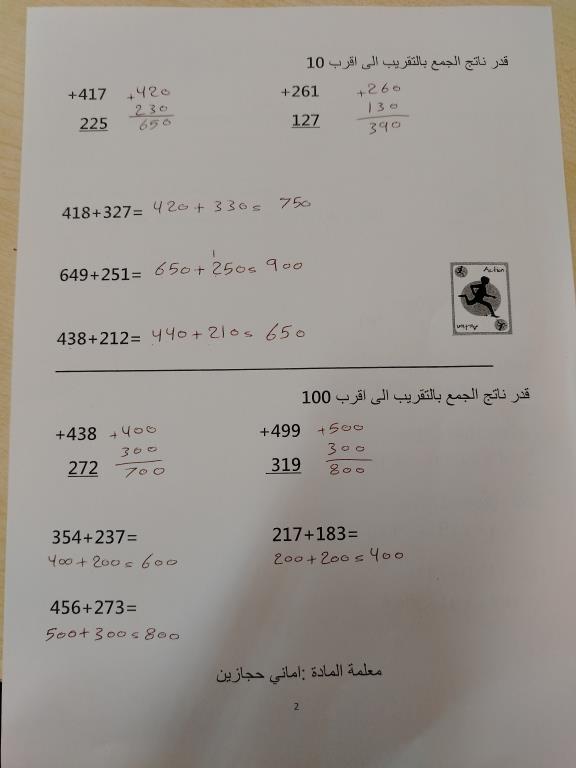 قدر ناتج الجمع بالتقريب الى اقرب 10
+417 +420 +261 +260
225 230 127 130
650 390
418+327= 420+330= 750
1
649+251= 650+250= 900
Action
Action
438+212= 440+210= 650
قدر ناتج الجمع بالتقريب الى اقرب 100
+438 +400 +499 +500
272 300 319 300
700 800
354+237= 217+183=
400+200=600 200+200=400
456+273=
500+300=800
معلمة المادة :اماني حجازين
2